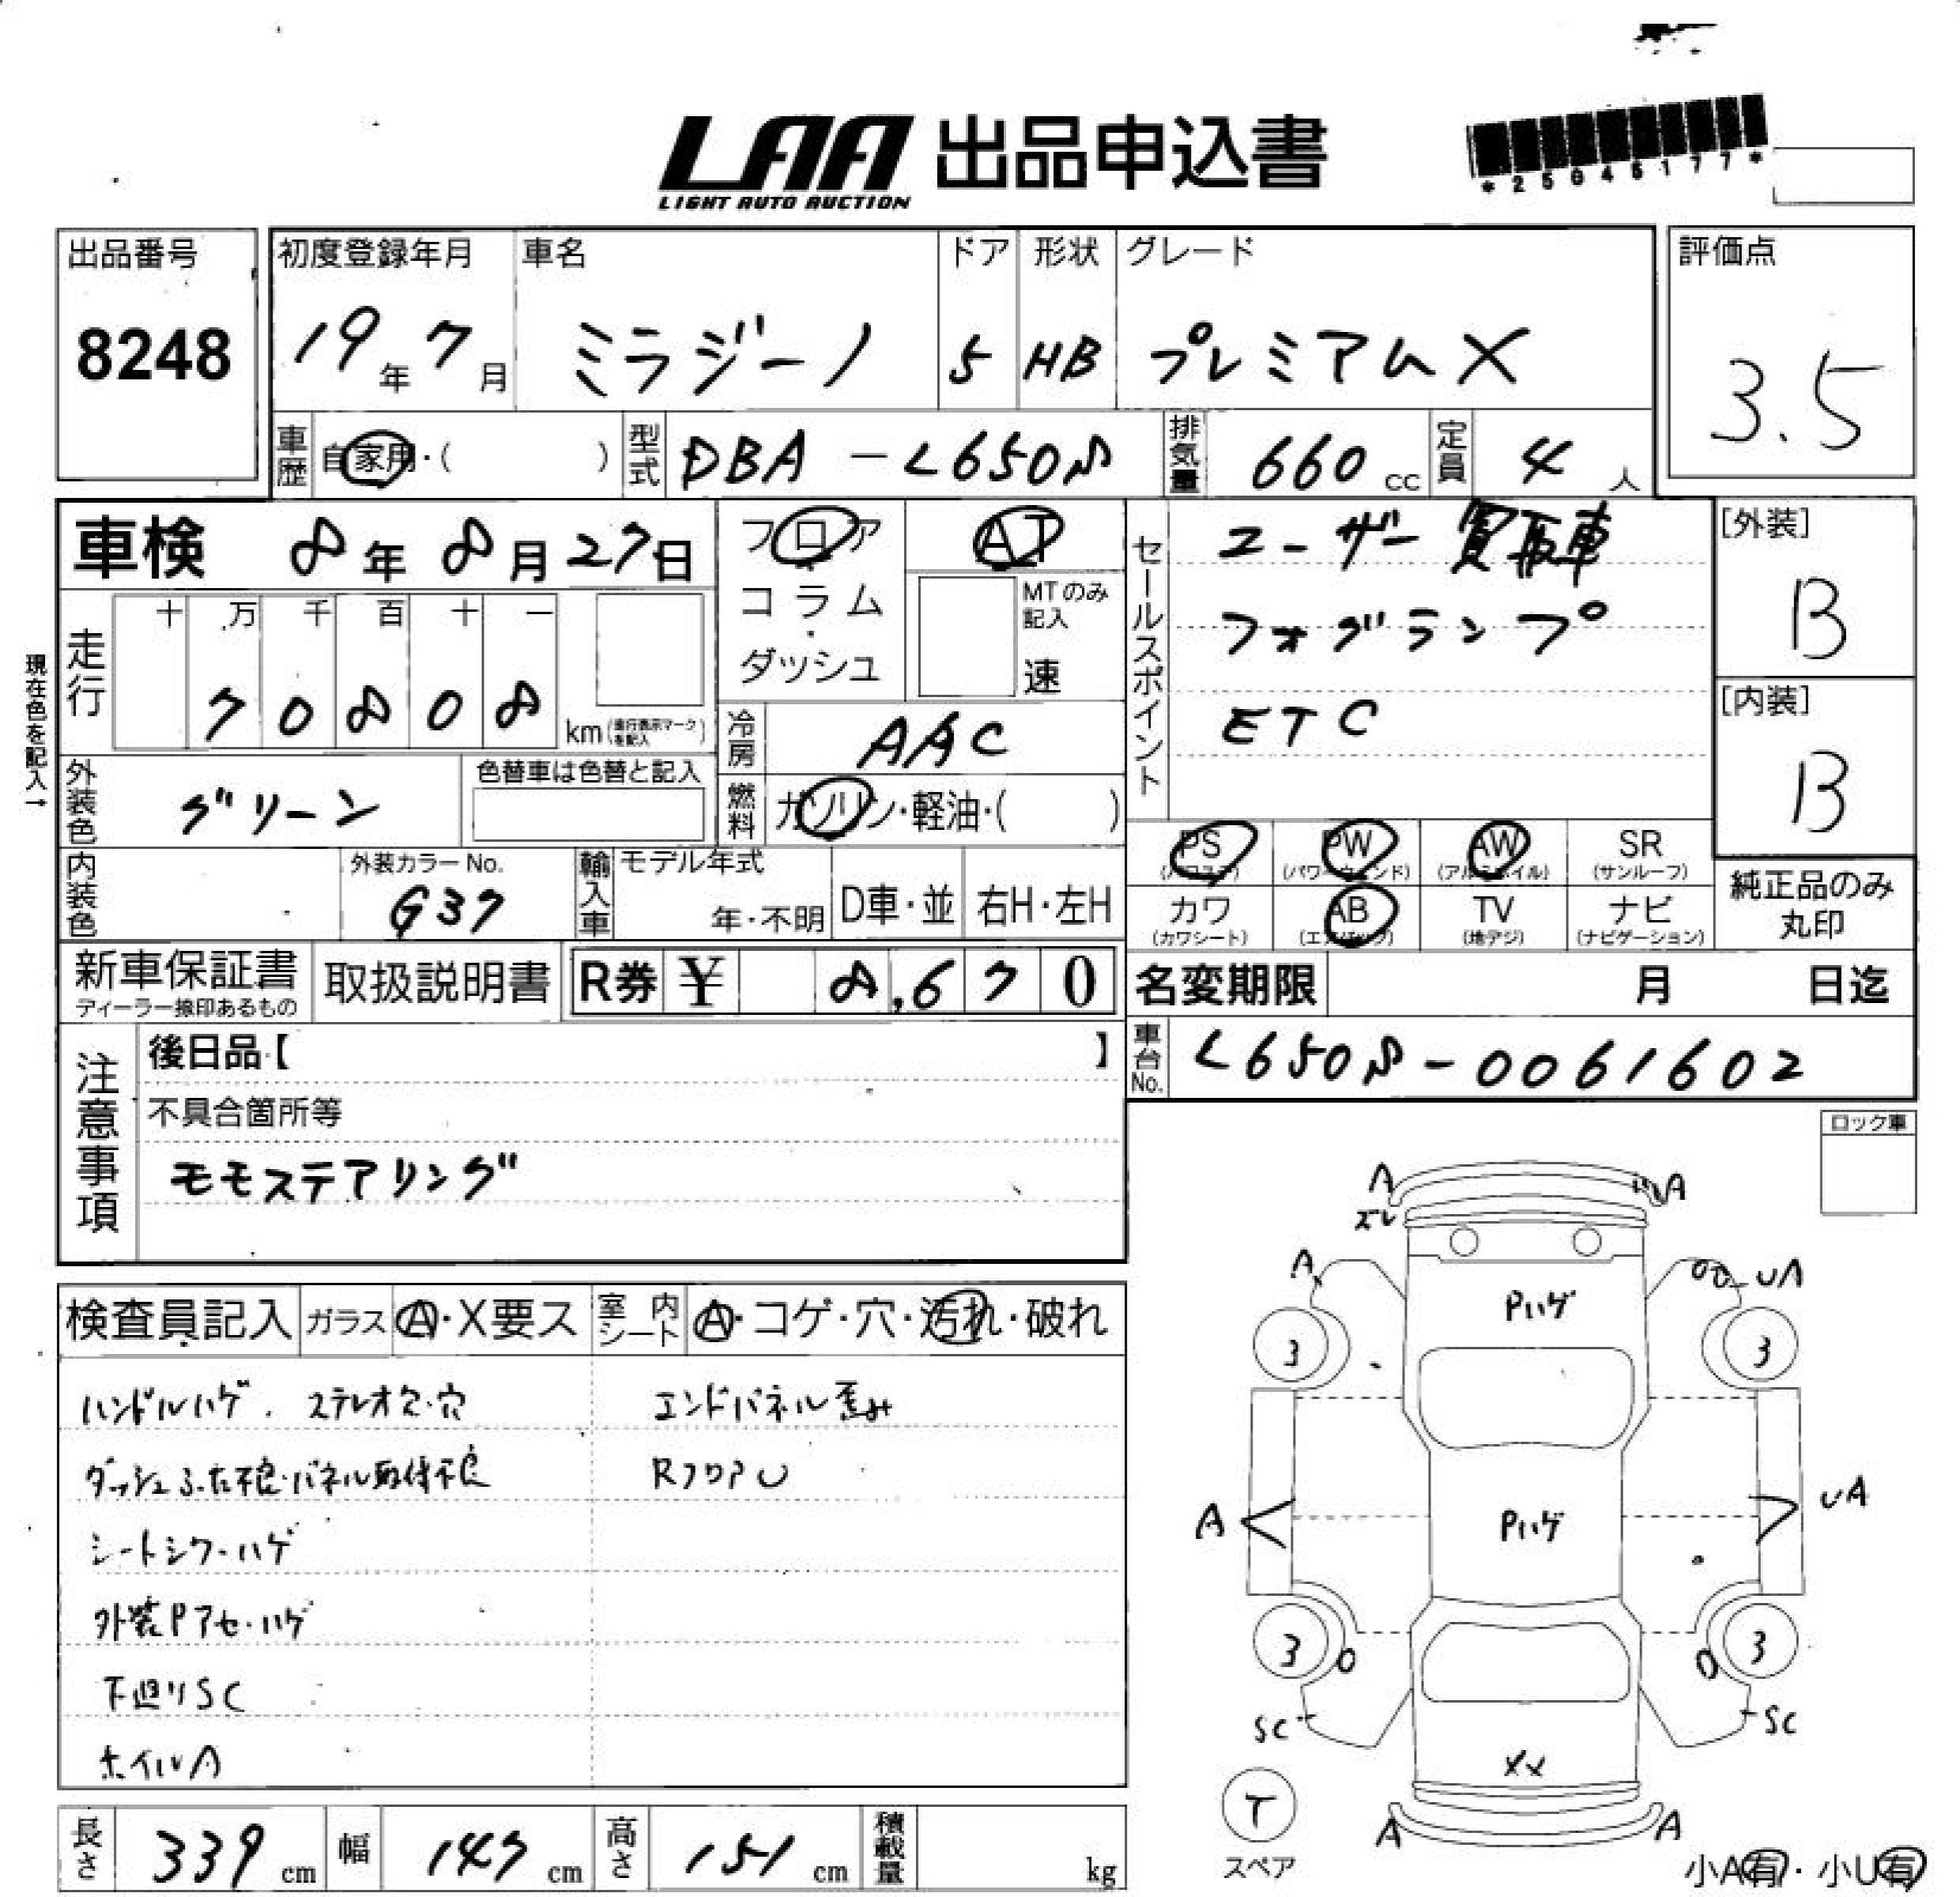 LAA 出品申込書
LIGHT AUTO AUCTION
*25045177*
出品番号 初度登録年月 車名 ドア 形状 グレード 評価点
8248 19年7月 ミラジーノ 5 HB プレミアムX 3.5
車歴 自家用・( ) 型式 DBA-L650S 排気量 660cc 定員 4人
車検 8年8月27日
フロア
コラム
・
ダッシュ
AT
MTのみ
記入
速
セールスポイント
ユーザー買取車
フォグランプ
ETC
[外装]
B
[内装]
B
現在色を記入→
走行 十 万 千 百 十 一
70808 km(走行表示マークを記入)
冷房 AAC
外装色 グリーン 色替車は色替と記入
燃料 ガソリン・軽油・( )
PS (パワステ) PW (パワーウィンド) AW (アルミホイル) SR (サンルーフ)
カワ (カワシート) AB (エアバック) TV (地デジ) ナビ (ナビゲーション)
純正品のみ
丸印
内装色 外装カラーNo. G37
輸入車 モデル年式 年・不明 D車・並 右H・左H
新車保証書 取扱説明書 R券 ¥ 8,670
ディーラー捺印あるもの
名変期限 月 日迄
車台No. L650S-0061602
注意事項
後日品【 】
不具合箇所等
モモステアリング
ロック車
検査員記入 ガラス A・X要ス 室内シート A・コゲ・穴・汚れ・破れ
ハンドルハゲ. ステレオ欠・穴 エンドパネル歪み
ダッシュふた不良・パネル取付不良 RフロアU
シートシワ・ハゲ
外装Pアセ・ハゲ
下廻りSC
ホイルA
A A
ズレ
A UA
Pハゲ
3 3
A UA
Pハゲ
3 3
SC SC
XX
T
スペア
A A
小A有・小U有
長さ 339cm 幅 147cm 高さ 151cm 積載量 kg